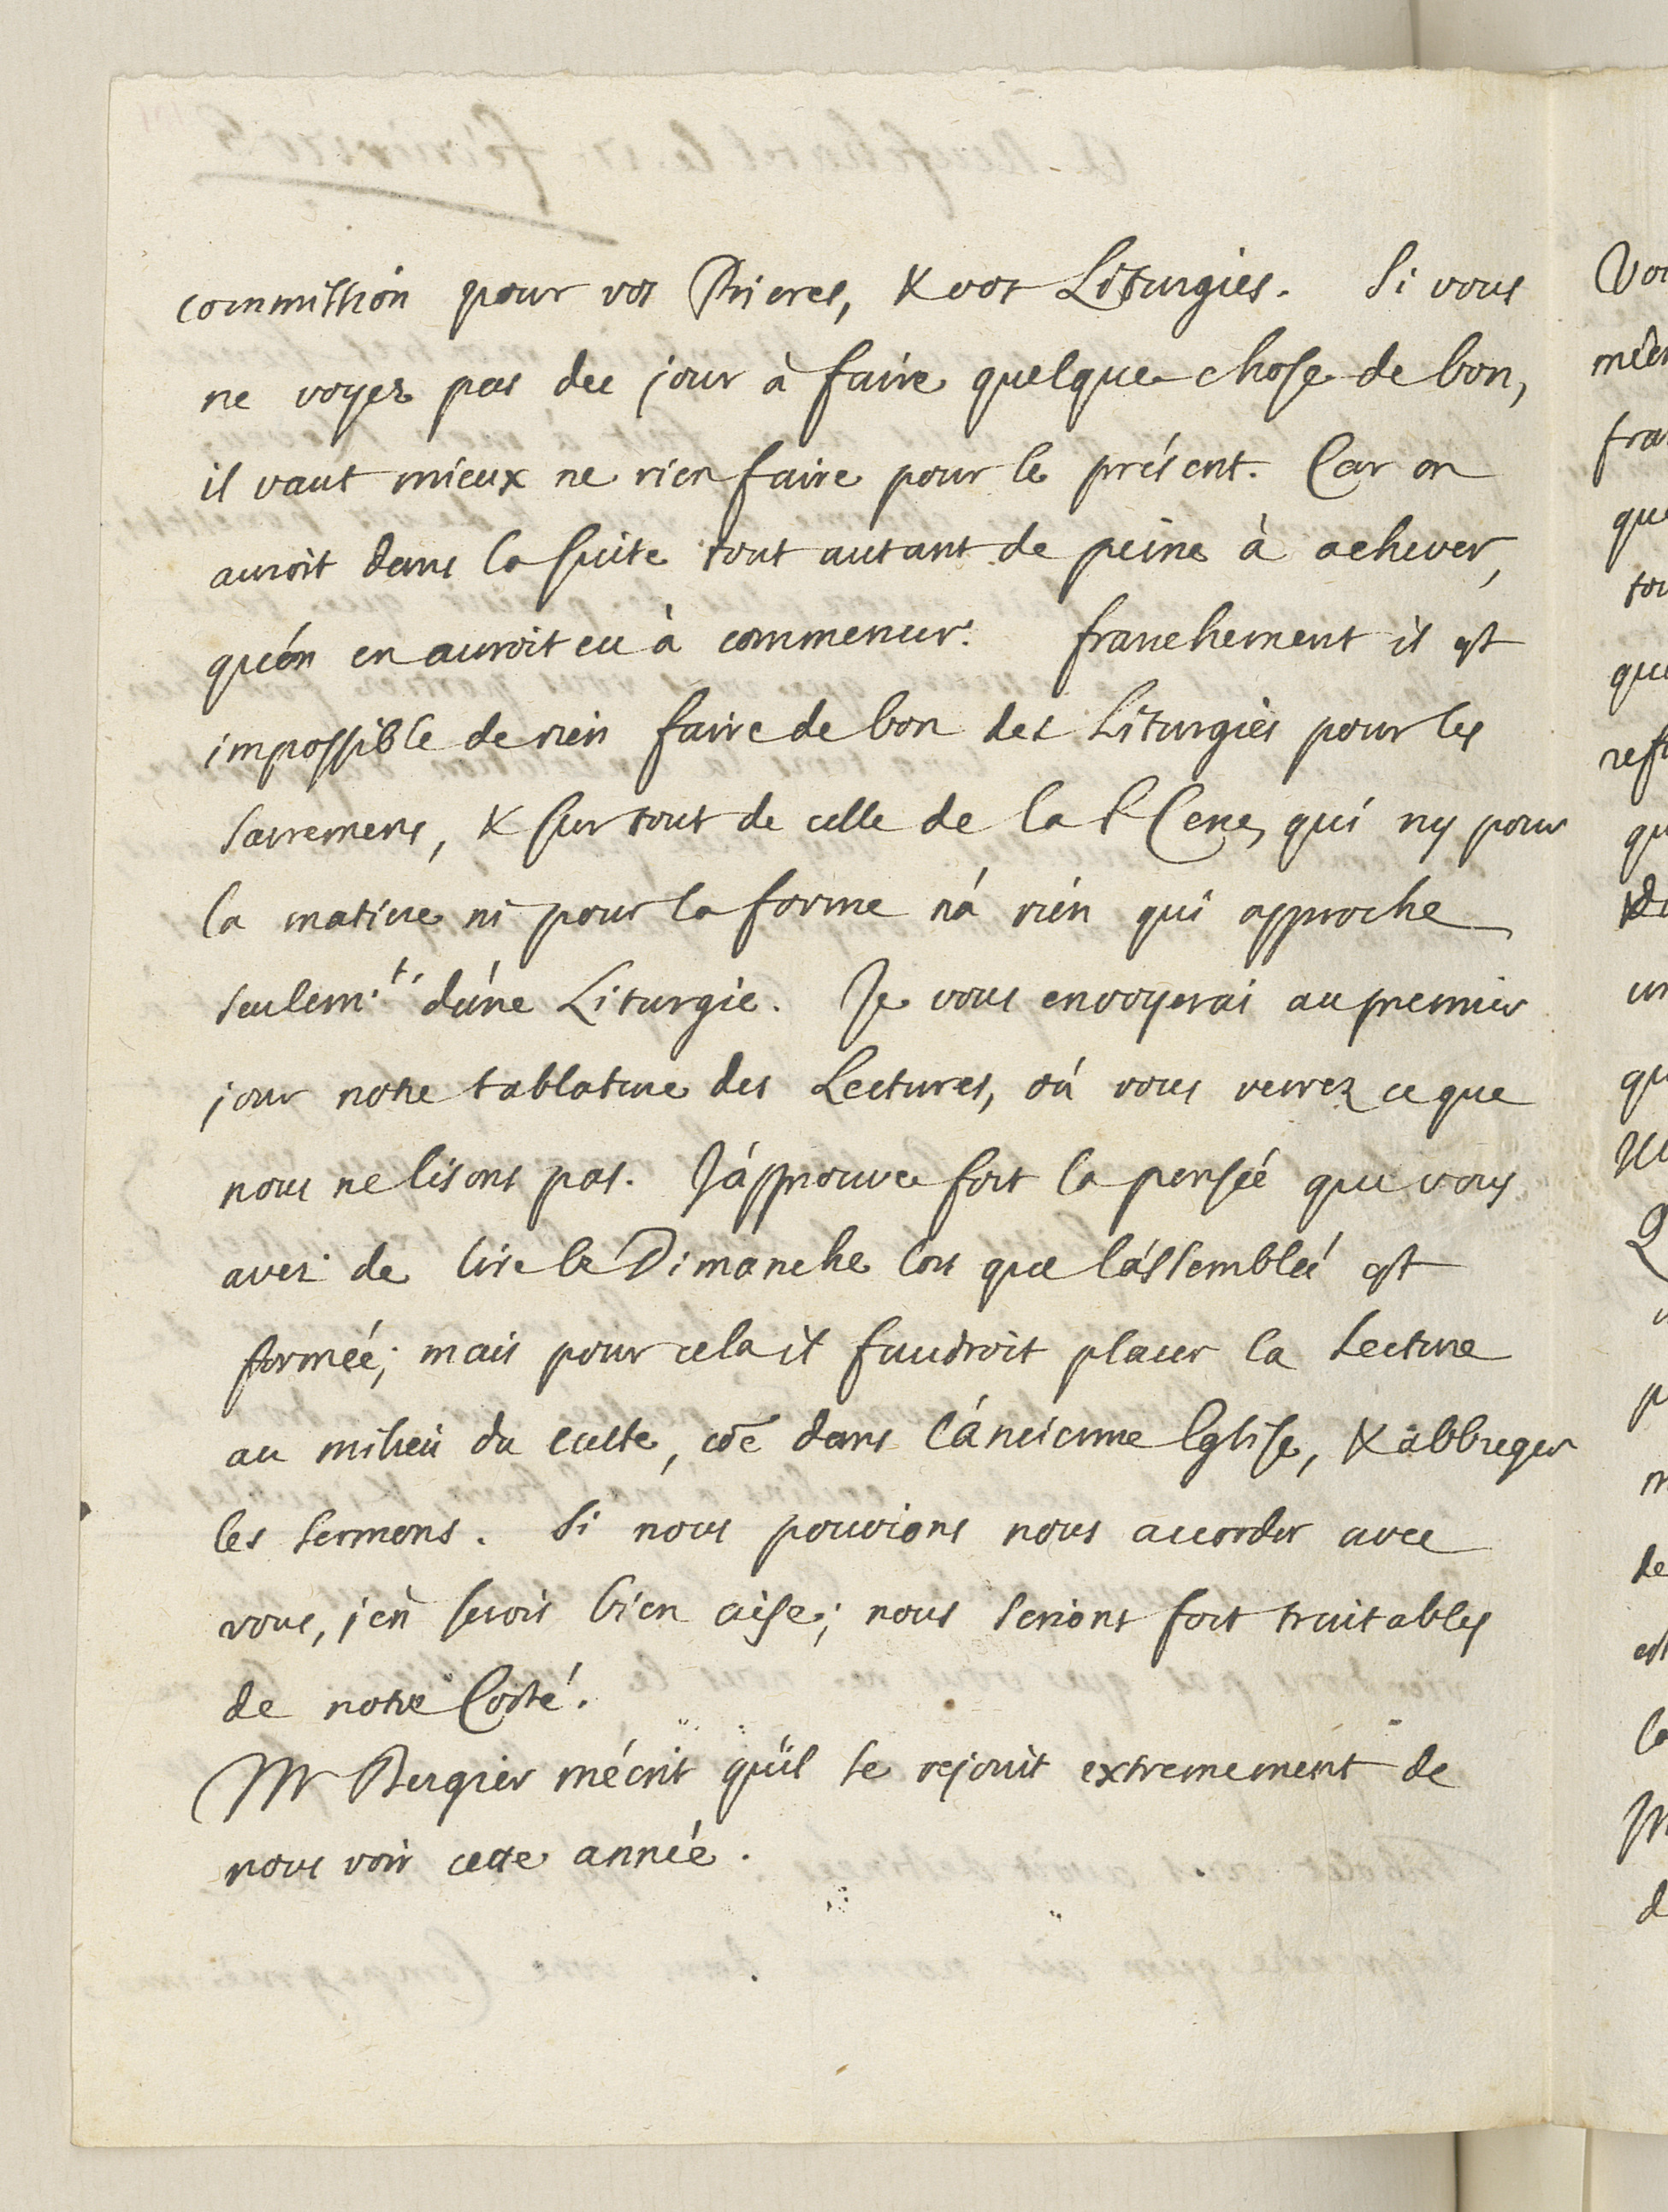 commission pour vos Prieres, & vos Liturgies. Si vous
ne voyez pas de jour à faire quelque chose de bon,
il vaut mieux ne rien faire pour le présent. Car on
auroit dans la suite tout autant de peine à achever,
qu'on en auroit eu à commencer. franchement il est
impossible de rien faire de bon des Liturgies pour les
sacremens, & sur tout de celle de la Ste Cene, qui ny pour
la matiere ni pour la forme n'a rien qui approche
seulem.t d'une Liturgie. Je vous envoyerai au premier
jour notre tablature des Lectures, où vous verrez ce que
nous ne lisons pas. J'approuve fort la pensée que vous
avez de lire le Dimanche lors que l'assemblée est
formée; mais pour cela il faudroit placer la Lecture
au milieu du culte, cōe dans l'ancienne Eglise, & abbreger
les sermons. Si nous pouvions nous accorder avec
vous, j'en serois bien aise; nous serions fort traitables
de notre Costé.
Mr Bergier m'écrit qu'il se rejouit extremement de
nous voir cette année.